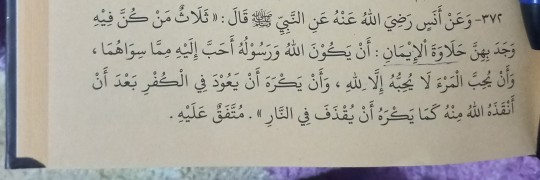 ٣٧٢- وَعَنْ أَنَسٍ رَضِيَ اللهُ عَنْهُ عَنِ النَّبِيِّ ﷺ قَالَ : « ثَلَاثٌ مَنْ كُنَّ فِيْهِ
وَجَدَ بِهِنَّ حَلَاوَةَ الْإِيْمَانِ : أَنْ يَكُوْنَ اللهُ وَرَسُوْلُهُ أَحَبَّ إِلَيْهِ مِمَّا سِوَاهُمَا ،
وَأَنْ يُحِبَّ الْمَرْءَ لَا يُحِبُّهُ إِلَّا لِلهِ ، وَأَنْ يَكْرَهَ أَنْ يَعُوْدَ فِي الْكُفْرِ بَعْدَ أَنْ
أَنْقَذَهُ اللهُ مِنْهُ كَمَا يَكْرَهُ أَنْ يُقْذَفَ فِي النَّارِ » . مُتَّفَقٌ عَلَيْهِ .